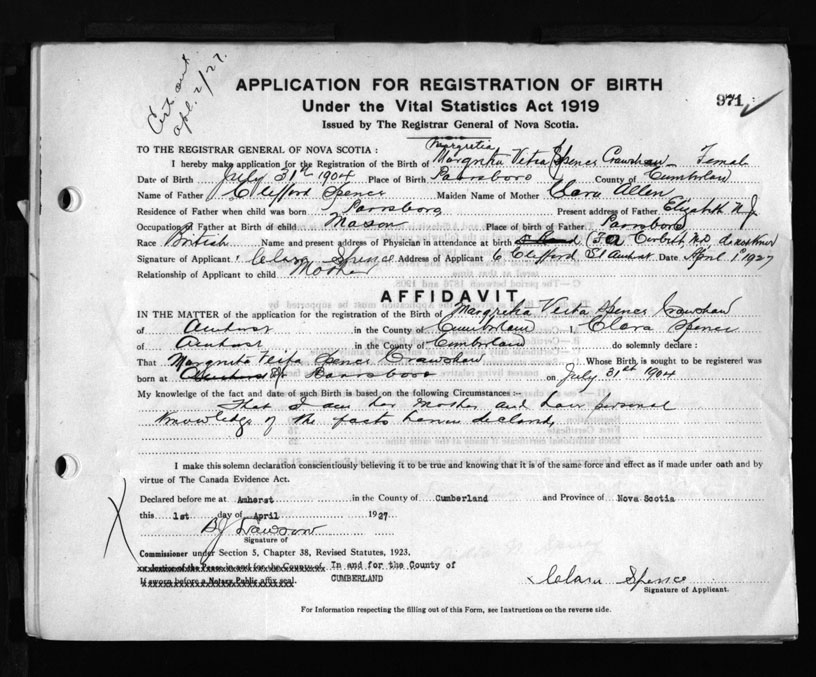 Cert out.
Apl. 2/27.
APPLICATION FOR REGISTRATION OF BIRTH
971
Under the Vital Statistics Act 1919
Issued by The Registrar General of Nova Scotia.
TO THE REGISTRAR GENERAL OF NOVA SCOTIA :
Margretia
I hereby make application for the Registration of the Birth of Margretta Vetra Spence Crawshaw Female
Date of Birth July 31st 1904 Place of Birth Parrsboro County of Cumberland
Name of Father Clifford Spence Maiden Name of Mother Clara Allen
Residence of Father when child was born Parrsboro Present address of Father Elizabeth N.J.
Occupation of Father at Birth of child Mason Place of birth of Father Parrsboro
Race British Name and present address of Physician in attendance at birth Corbett, M.D. do not know
Signature of Applicant Clara Spence Address of Applicant 6 Clifford St Amherst Date April 1st 1927
Relationship of Applicant to child Mother
AFFIDAVIT
IN THE MATTER of the application for the registration of the Birth of Spence Crawshaw
of Amherst in the County of Cumberland I, Clara Spence
of Amherst in the County of Cumberland do solemnly declare :
That Spence Crawshaw Whose Birth is sought to be registered was
born at Parrsboro on July 31st 1904
My knowledge of the fact and date of such Birth is based on the following Circumstances :-
That I am her Mother and have personal
knowledge of the facts herein declared,
I make this solemn declaration conscientiously believing it to be true and knowing that it is of the same force and effect as if made under oath and by
virtue of The Canada Evidence Act.
Declared before me at Amherst in the County of Cumberland and Province of Nova Scotia
this 1st day of April 1927
Lawson
Signature of
Commissioner under Section 5, Chapter 38, Revised Statutes, 1923.
In and for the County of
If sworn before a Notary Public affix seal. CUMBERLAND
Clara Spence
Signature of Applicant.
For Information respecting the filling out of this Form, see Instructions on the reverse side.